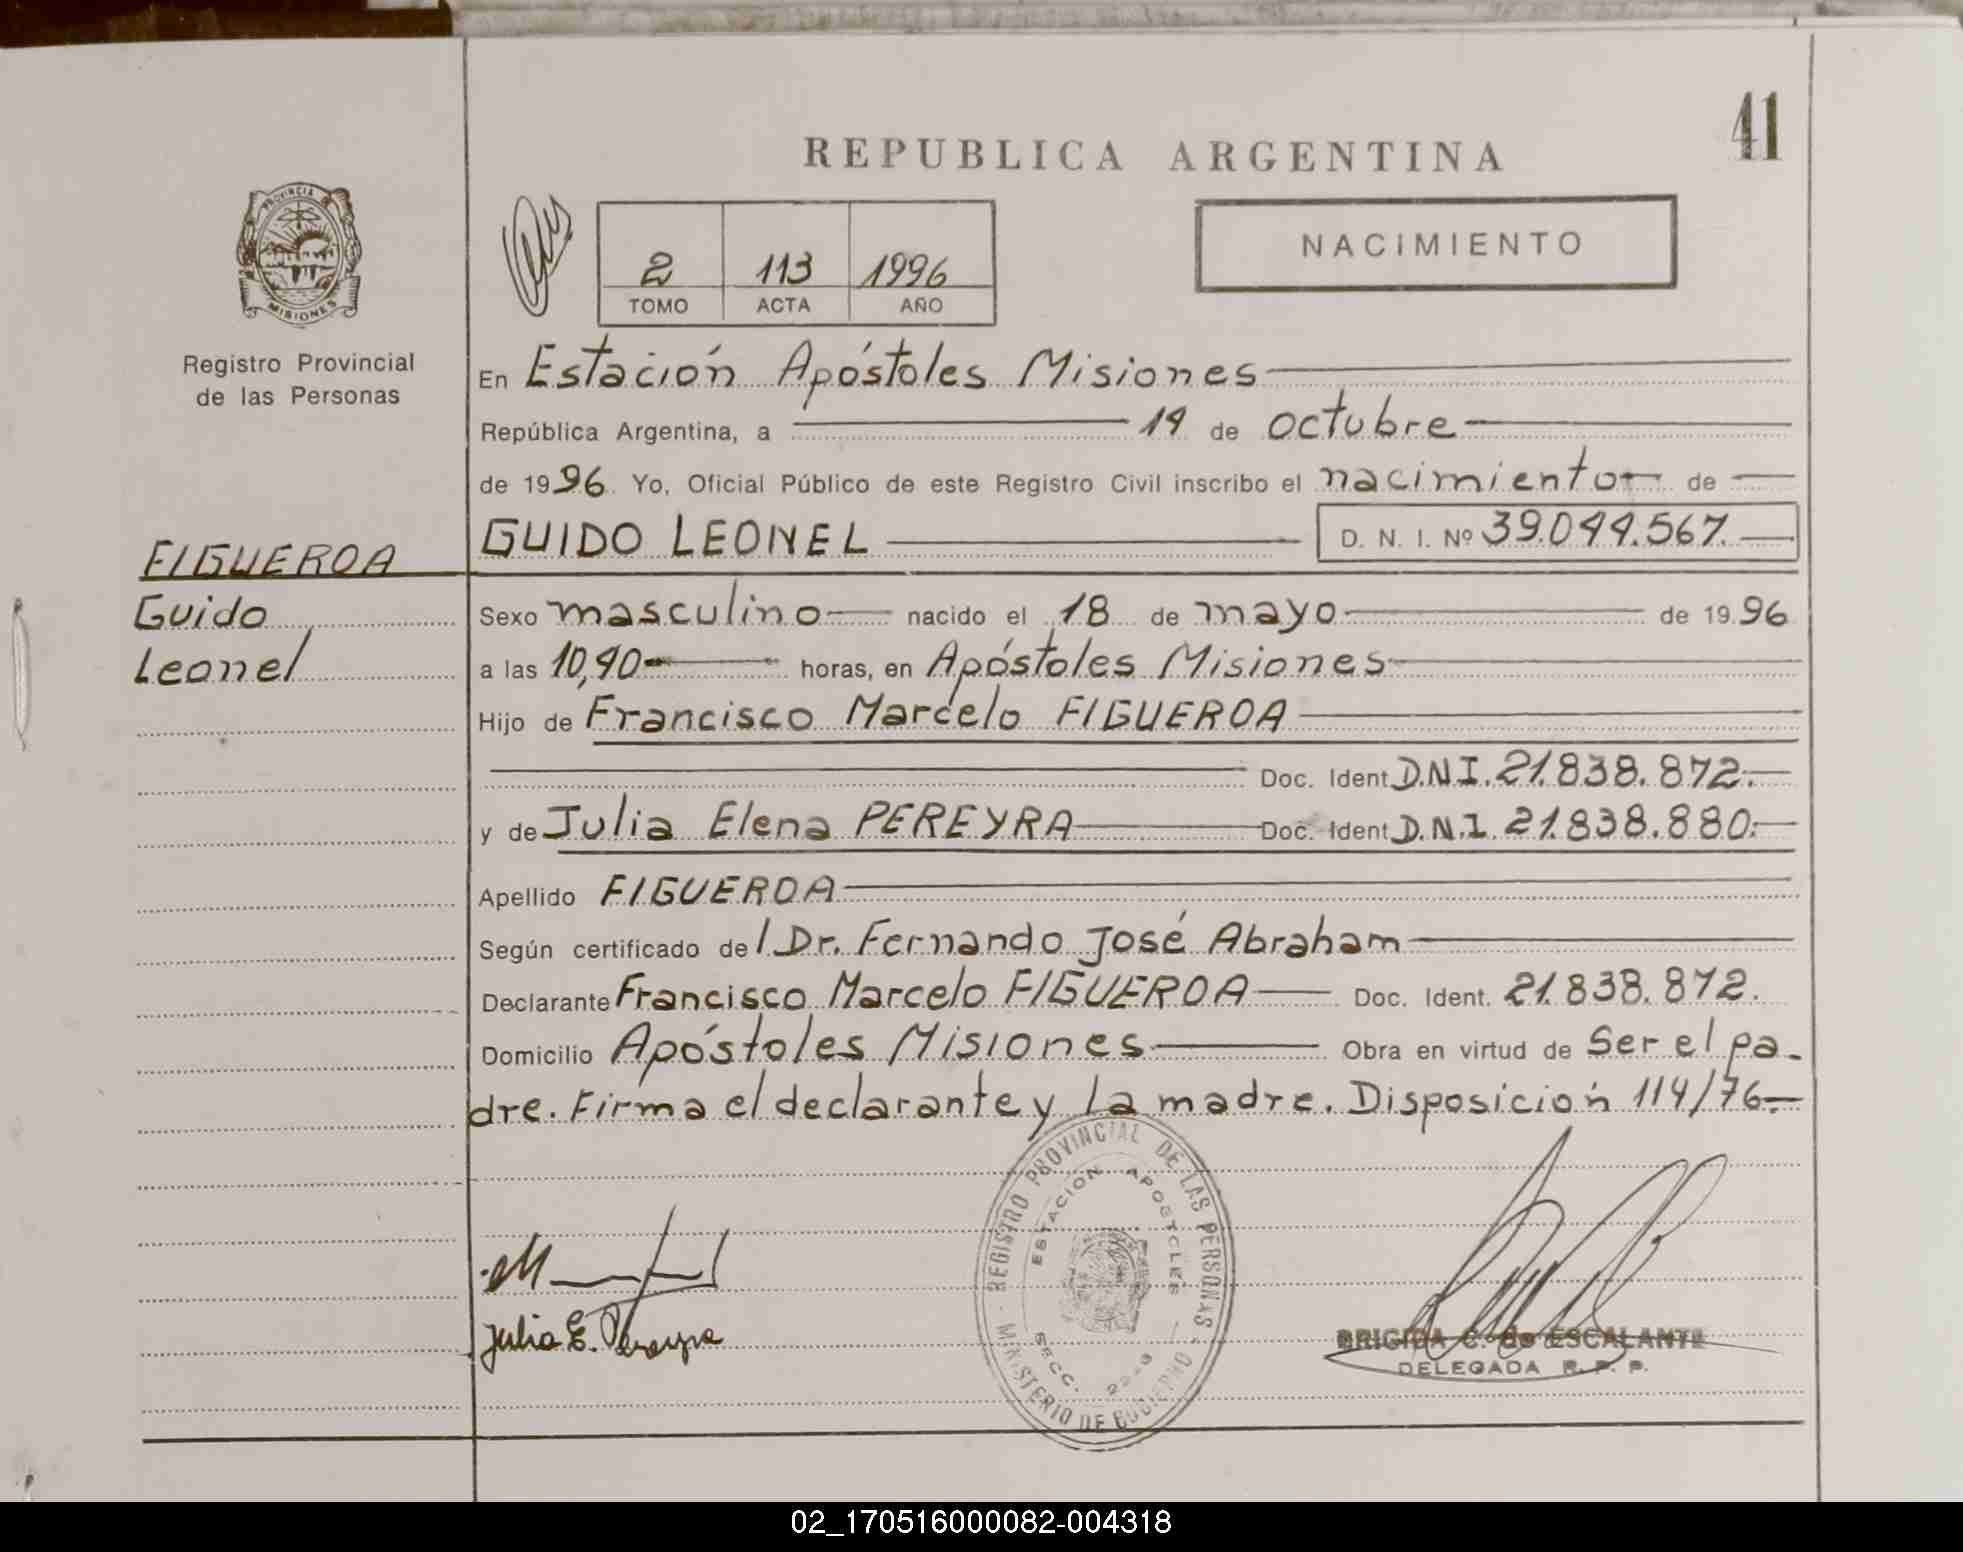 41
REPUBLICA ARGENTINA
NACIMIENTO
2 113 1996
TOMO ACTA AÑO
PROVINCIA
MISIONES
Registro Provincial
de las Personas
FIGUEROA
Guido
Leonel
En Estación Apóstoles Misiones
República Argentina, a 14 de octubre
de 1996. Yo, Oficial Público de este Registro Civil inscribo el nacimiento de
GUIDO LEONEL D. N. I. Nº 39.044.567.
Sexo masculino nacido el 18 de mayo de 1996
a las 10,40 horas, en Apóstoles Misiones
Hijo de Francisco Marcelo FIGUEROA
Doc. Ident. D.N.I. 21.838.872.
y de Julia Elena PEREYRA Doc. Ident. D.N.I. 21.838.880.
Apellido FIGUEROA
Según certificado del Dr. Fernando José Abraham
Declarante Francisco Marcelo FIGUEROA Doc. Ident. 21.838.872.
Domicilio Apóstoles Misiones Obra en virtud de Ser el pa-
dre. Firma el declarante y la madre. Disposición 114/76.
REGISTRO PROVINCIAL DE LAS PERSONAS
ESTACION APOSTOLES
SECC.
MINISTERIO DE GOBIERNO
Julia E. Pereyra
BRIGIDA C. de ESCALANTE
DELEGADA R. P. P.
02_170516000082-004318